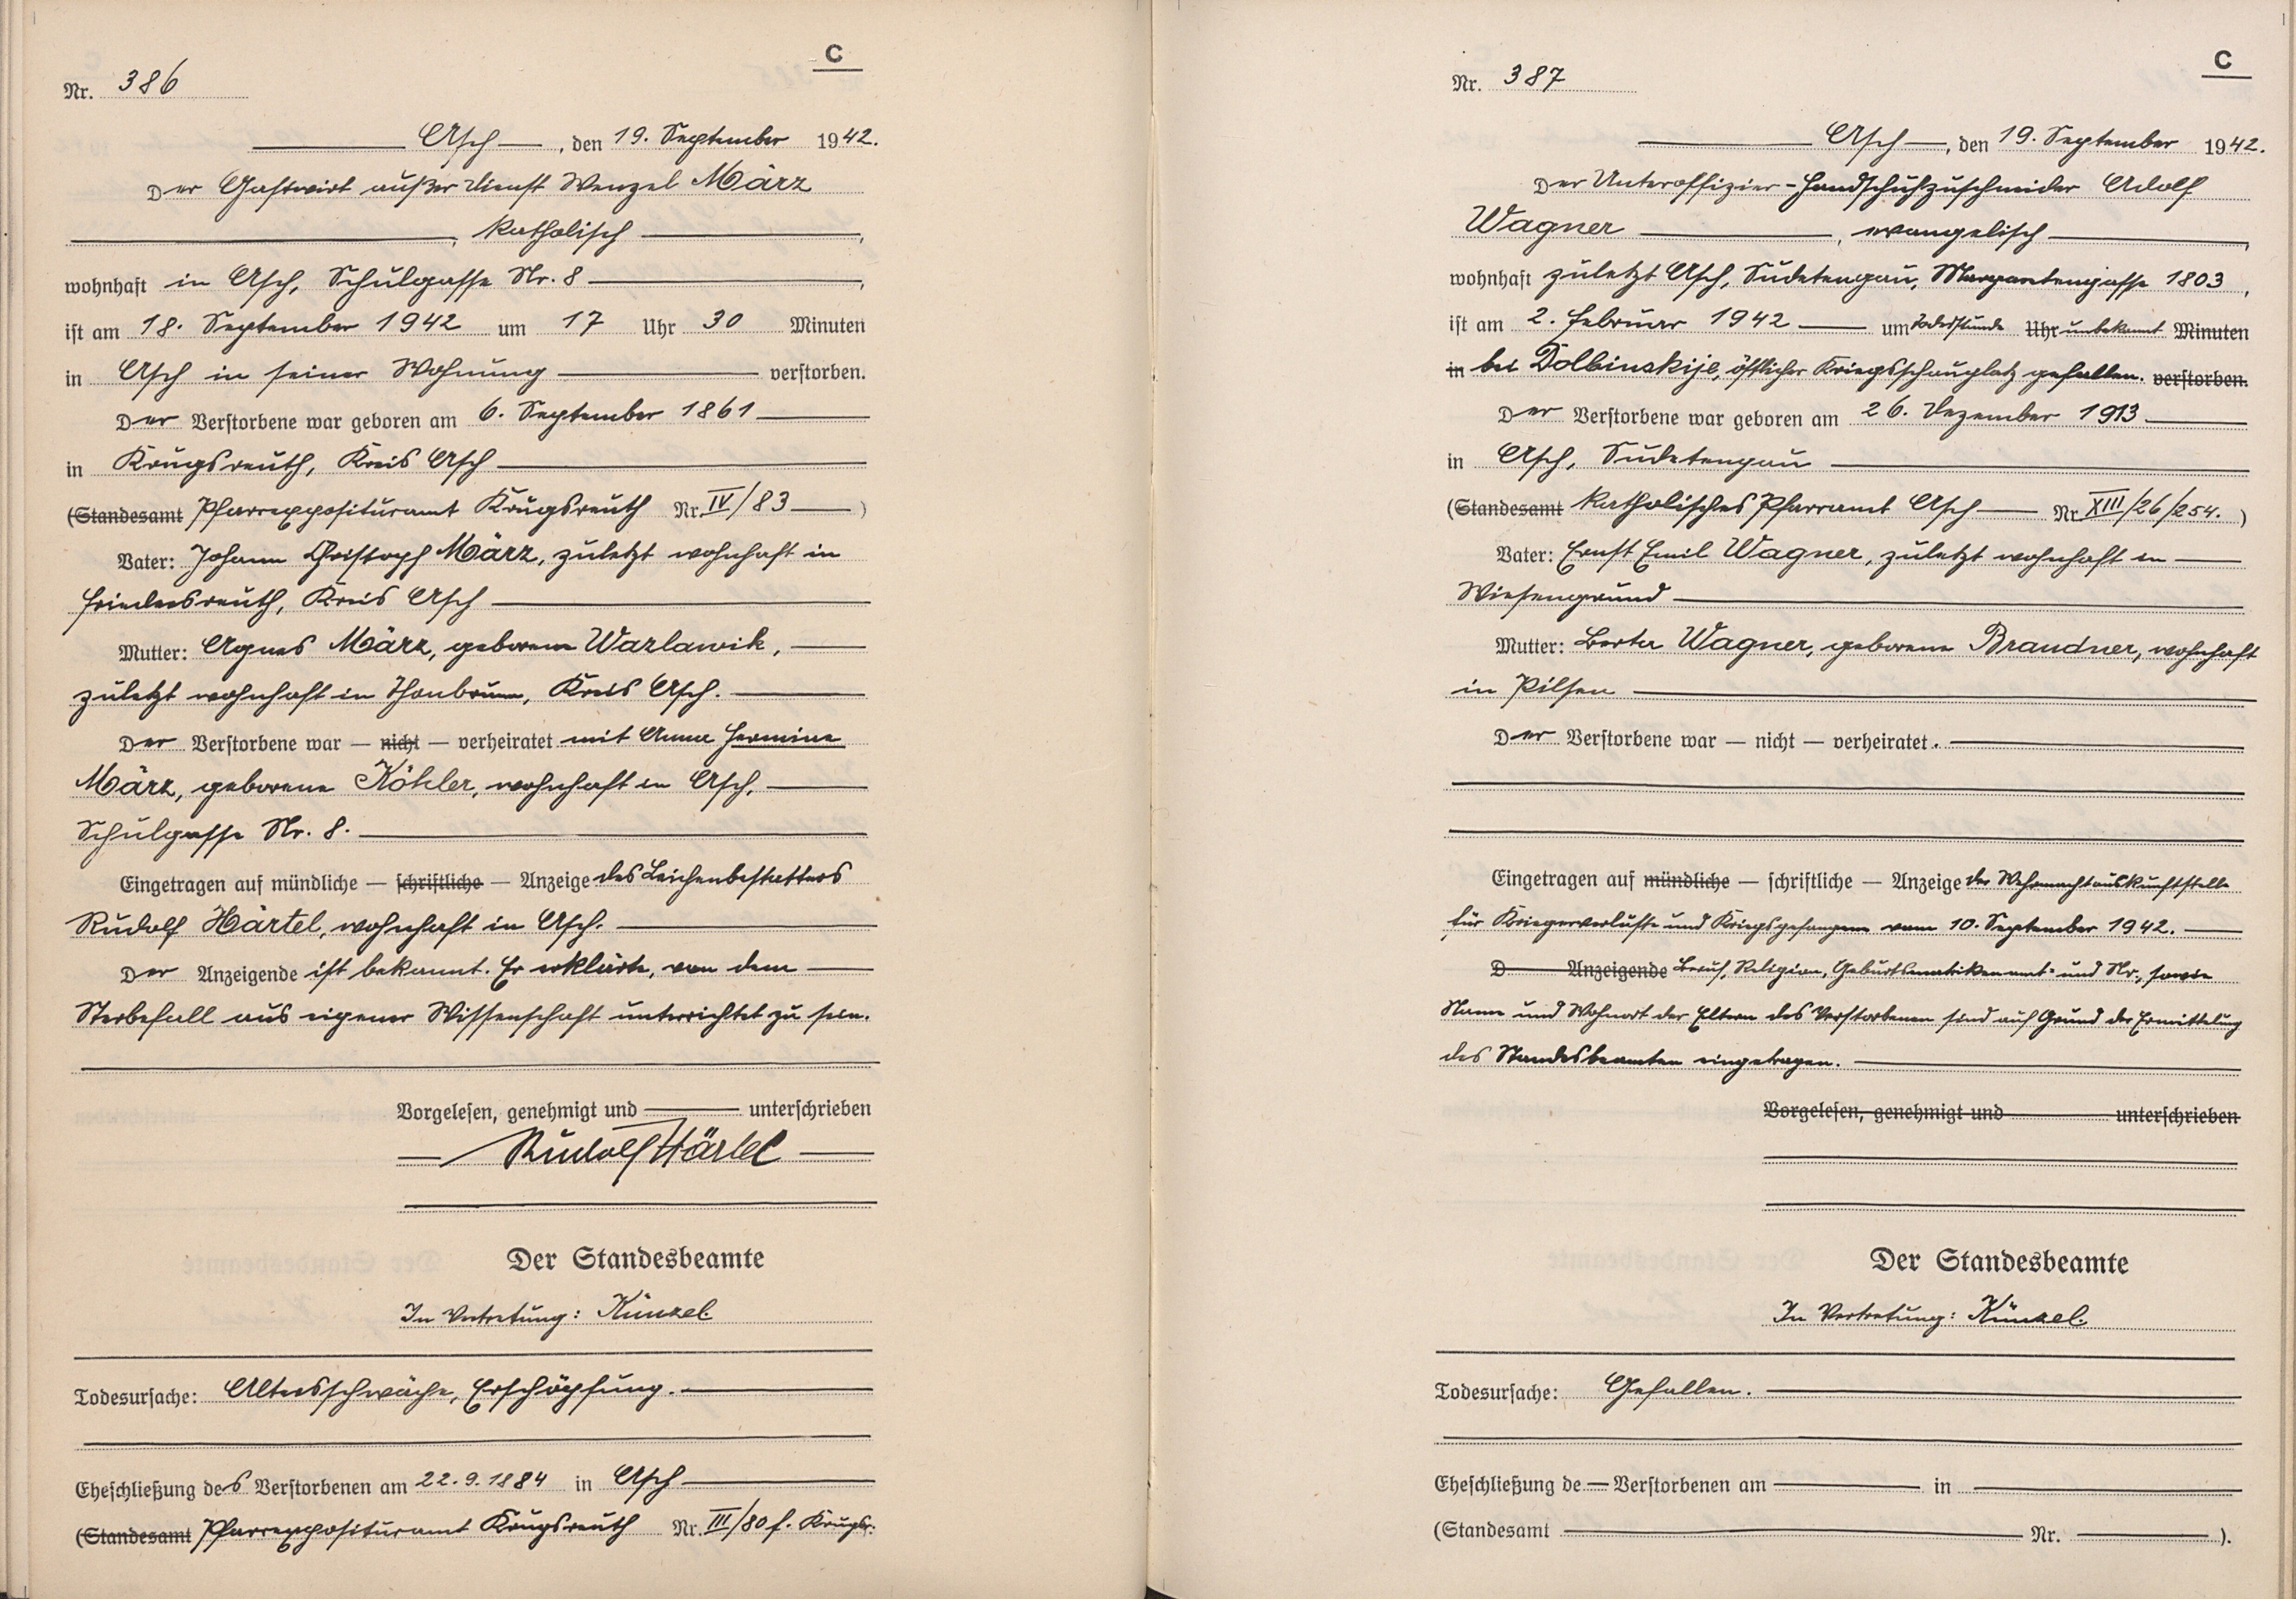 C
Nr. 386
Asch, den 19. September 1942.
Der Gastwirt außer Dienst Wenzel März
, katholisch ,
wohnhaft in Asch, Schulgasse Nr. 8 ,
ist am 18. September 1942 um 17 Uhr 30 Minuten
in Asch in seiner Wohnung verstorben.
Der Verstorbene war geboren am 6. September 1861
in Krugsreuth, Kreis Asch
(Standesamt Pfarrexpositüramt Krugsreuth Nr. IV/83 )
Vater: Johann Christoph März, zuletzt wohnhaft in
Friedersreuth, Kreis Asch
Mutter: Agnes März, geborene Wazlawik,
zuletzt wohnhaft in Thonbrunn, Kreis Asch.
Der Verstorbene war — nicht — verheiratet mit Anna Hermine
März, geborene Köhler, wohnhaft in Asch,
Schulgasse Nr. 8.
Eingetragen auf mündliche — schriftliche — Anzeige des Leichenbestatters
Rudolf Härtel, wohnhaft in Asch.
Der Anzeigende ist bekannt. Er erklärte, von dem
Sterbefall aus eigener Wissenschaft unterrichtet zu sein.
Vorgelesen, genehmigt und unterschrieben
Rudolf Härtel
Der Standesbeamte
In Vertretung: Künzel.
Todesursache: Altersschwäche, Erschöpfung.
Eheschließung des Verstorbenen am 22.9.1884 in Asch
(Standesamt Pfarrexpositüramt Krugsreuth Nr. III/80 f. Krugsr.
C
Nr. 387
Asch, den 19. September 1942.
Der Unteroffizier - Handschuhzuschneider Adolf
Wagner , evangelisch ,
wohnhaft zuletzt Asch, Sudetengau, Margaretengasse 1803 ,
ist am 2. Februar 1942 um Todesstunde Uhr unbekannt Minuten
in bei Dolbinskije, östlicher Kriegsschauplatz gefallen. verstorben.
Der Verstorbene war geboren am 26. Dezember 1913
in Asch, Sudetengau
(Standesamt katholisches Pfarramt Asch Nr. XIII/26/254. )
Vater: Ernst Emil Wagner, zuletzt wohnhaft in
Wiesengrund
Mutter: Berta Wagner, geborene Brandner, wohnhaft
in Pilsen
Der Verstorbene war — nicht — verheiratet.
Eingetragen auf mündliche — schriftliche — Anzeige der Wehrmachtauskunftstelle
für Kriegerverluste und Kriegsgefangene vom 10. September 1942.
D Anzeigende Beruf, Religion, Geburtsmatrikenamt- und Nr., sowie
Name und Wohnort der Eltern des Verstorbenen sind auf Grund der Ermittelung
des Standesbeamten eingetragen.
Vorgelesen, genehmigt und unterschrieben
Der Standesbeamte
In Vertretung: Künzel.
Todesursache: Gefallen.
Eheschließung de — Verstorbenen am in
(Standesamt Nr. ).